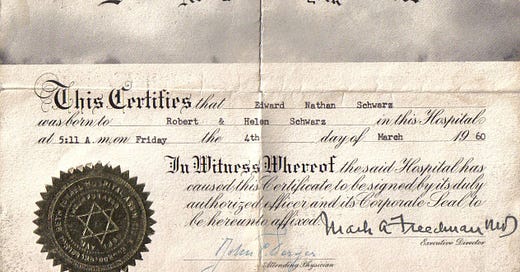 This Certifies that Edward Nathan Schwarz
was born to Robert & Helen Schwarz in this Hospital
at 5:11 A. m. on Friday the 4th day of March 1960
In Witness Whereof the said Hospital has
caused this Certificate to be signed by its duly
authorized officer and its Corporate Seal to
be hereunto affixed.
Mark A Freedman MD
Executive Director
Attending Physician